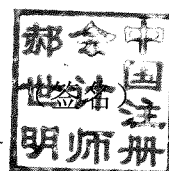 中国注册
会计师
郝世明
（签名）